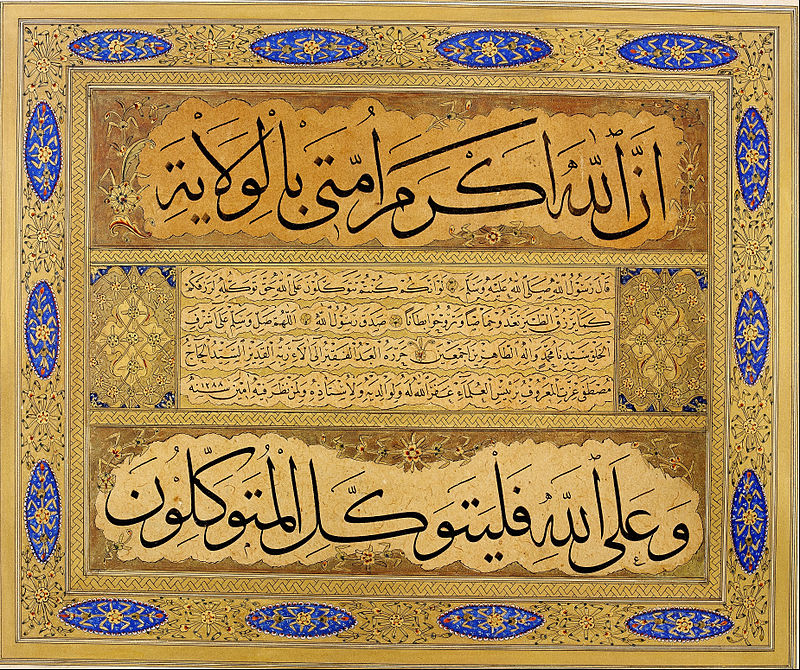 انَّ اللهَ اكْرَمَ اُمَّتى بِالْوِلَايَةِ
قال رسول الله صلى الله عليه وسلم لو انكم كنتم تتوكلون على الله حق توكله لرزقكم
كما يرزق الطير تغدو خماصا وتروح بطانا صدق رسول الله اللهم صل وسلم على اشرف
الخلق سيدنا محمد واله الطاهرين اجمعين حرره العبد الفقير الى الاء ربه القدير السيد الحاج
مصطفى عزت المعروف برئيس العلماء غفر الله له ولوالديه ولاستاذه ولمن نظر فيه امين ١٢٨٨
وَعَلَى اللهِ فَلْيَتَوَكَّلِ الْمُتَوَكِّلُونَ